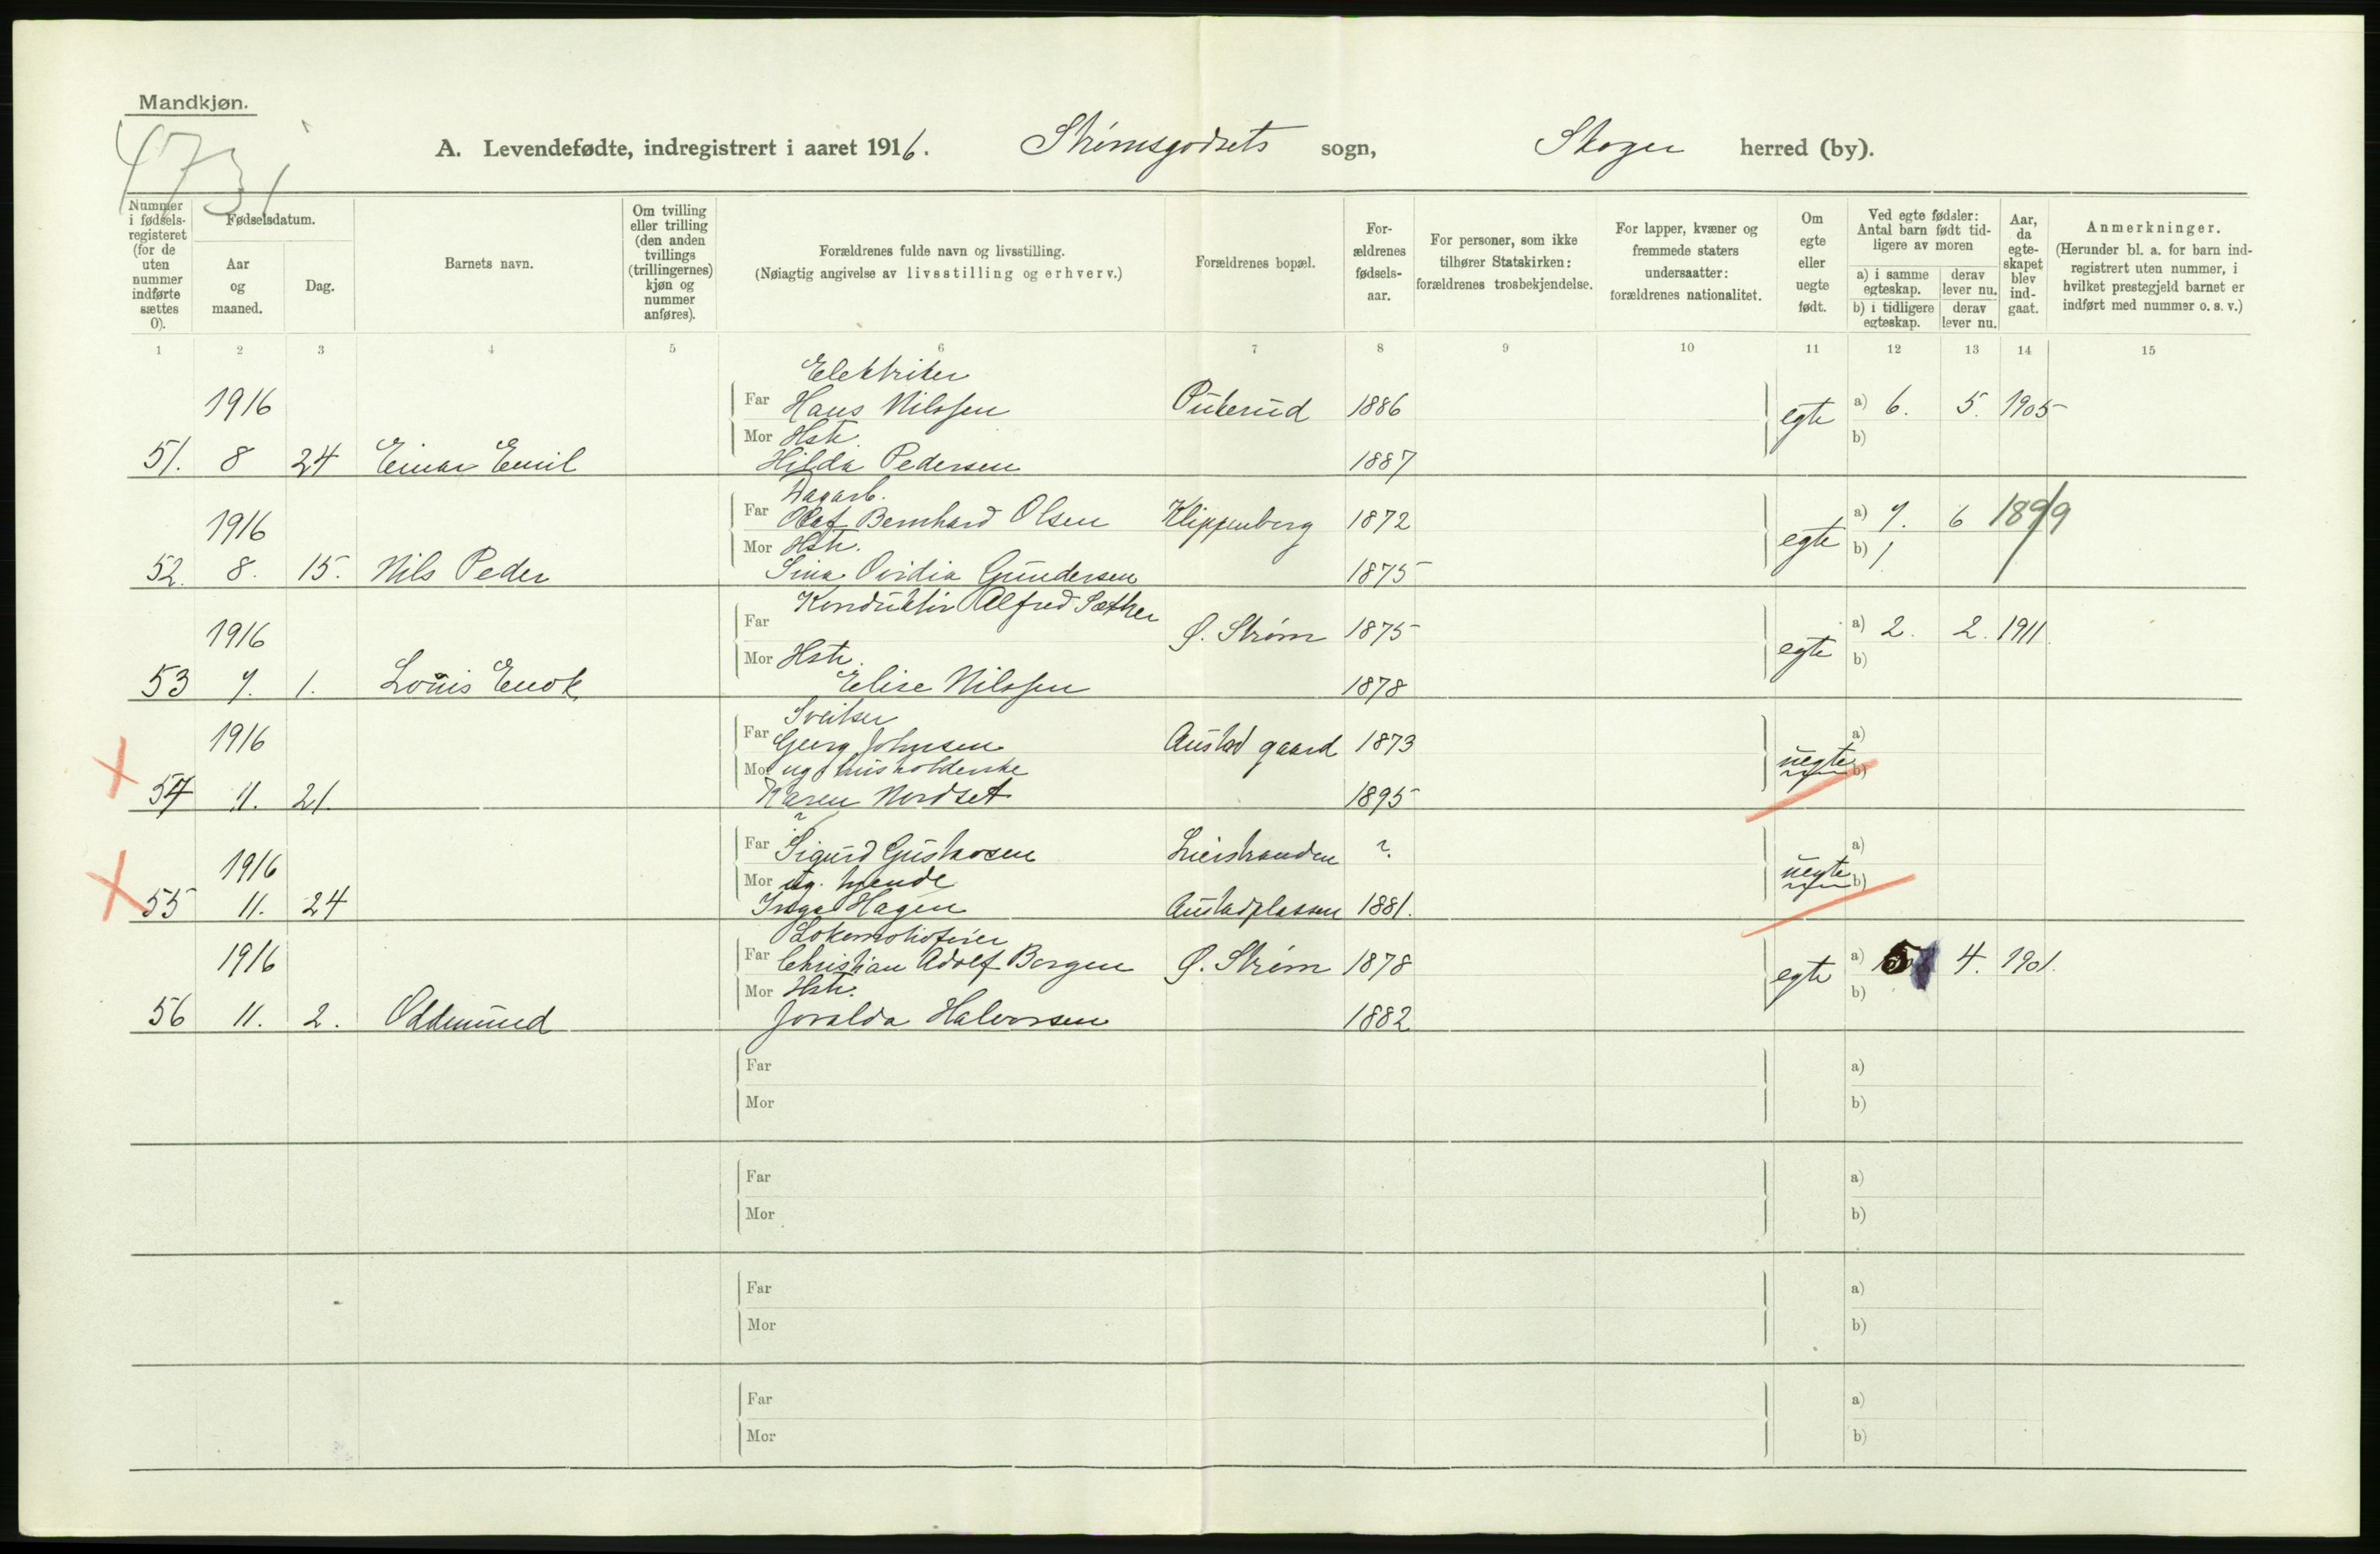 Mandkjøn.
4731
A. Levendefødte, indregistrert i aaret 1916. Strømsgodsets sogn, Skoger herred (by).
Nummer i fødsels-registeret (for de uten nummer indførte sættes 0).
Fødselsdatum.
Aar og maaned.
Dag.
Barnets navn.
Om tvilling eller trilling (den anden tvillings (trillingernes) kjøn og nummer anføres).
Forældrenes fulde navn og livsstilling.
(Nøiagtig angivelse av livsstilling og erhverv.)
Forældrenes bopæl.
For-ældrenes fødsels-aar.
For personer, som ikke tilhører Statskirken: forældrenes trosbekjendelse.
For lapper, kvæner og fremmede staters undersaatter: forældrenes nationalitet.
Om egte eller uegte født.
Ved egte fødsler: Antal barn født tid-ligere av moren
a) i samme egteskap.
derav lever nu.
b) i tidligere egteskap.
derav lever nu.
Aar, da egte-skapet blev ind-gaat.
Anmerkninger.
(Herunder bl. a. for barn ind-registrert uten nummer, i hvilket prestegjeld barnet er indført med nummer o. s. v.)
1 2 3 4 5 6 7 8 9 10 11 12 13 14 15
Elektriker
1916 Far Hans Nilssen Pukerud 1886 egte a) 6. 5. 1905
Mor Hstr. b)
51. 8 24 Einar Emil Hilda Pedersen 1887
Dagarb.
1916 Far Olaf Bernhard Olsen Klippenberg 1872 egte a) 7. 6 1899
Mor Hstr. b) 1
52. 8. 15. Nils Peder Sina Ovidia Gundersen 1875
Konduktør Alfred Sæther
1916 Far Ø. Strøm 1875 egte a) 2. 2. 1911.
Mor Hstr. b)
53 7. 1. Louis Enok Elise Nilssen 1878
Sveitser
1916 Far Georg Johnsen Austad gaard 1873 uegte a)
Mor ug. husholderske b)
54 11. 21. Karen Nordset 1895
?
1916 Far Sigurd Gustavsen Lierstranden ? uegte a)
Mor ug. tjende b)
55 11. 24 Inga Hagen Austadplassen 1881.
Lokomotivfører
1916 Far Christian Adolf Borgen Ø. Strøm 1878 egte a) 5 4. 1901.
Mor Hstr. b)
56 11. 2. Oddmund Jovalda Halvorsen 1882
Far a)
Mor b)
Far a)
Mor b)
Far a)
Mor b)
Far a)
Mor b)